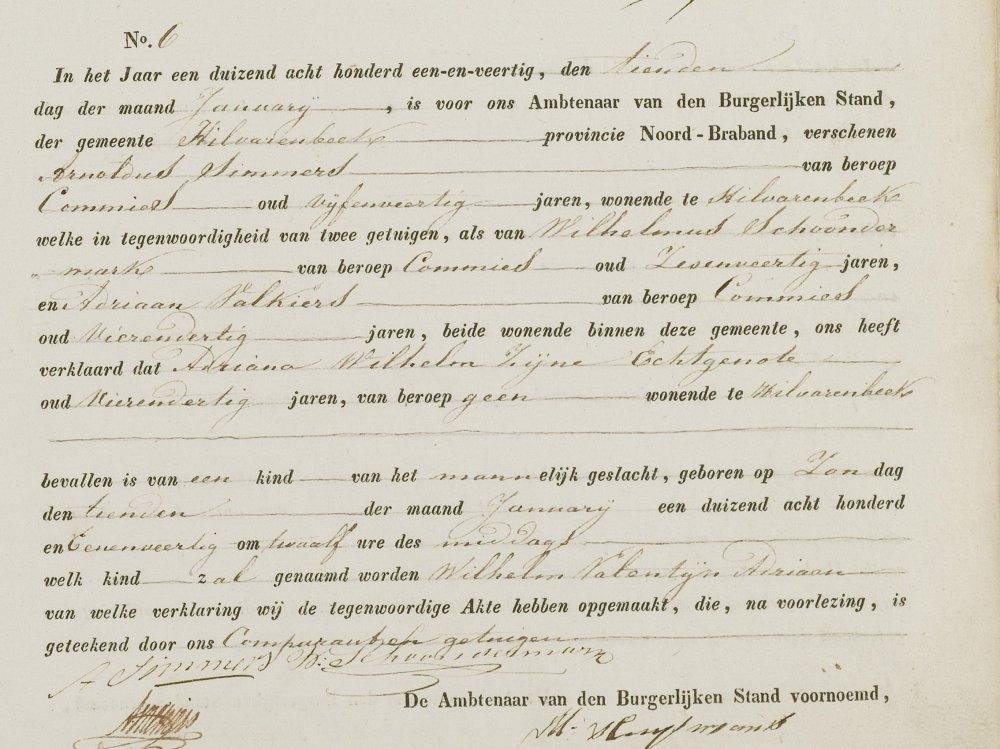 No. 6
In het Jaar een duizend acht honderd een-en-veertig, den tienden
dag der maand Januarij, is voor ons Ambtenaar van den Burgerlijken Stand,
der gemeente Hilvarenbeek provincie Noord-Braband, verschenen
Arnoldus Simmers van beroep
Commies oud Vijfenveertig jaren, wonende te Hilvarenbeek
welke in tegenwoordigheid van twee getuigen, als van Wilhelmus Schoonder
mark van beroep Commies oud Zesenveertig jaren,
en Adriaan van beroep Commies
oud Vierendertig jaren, beide wonende binnen deze gemeente, ons heeft
verklaard dat Adriana Wilhelm Zijne Echtgenote
oud Vierendertig jaren, van beroep geen wonende te Hilvarenbeek
bevallen is van een kind van het mannelijk geslacht, geboren op Zondag
den tienden der maand Januarij een duizend acht honderd
en Eenenveertig om twaalf ure des middags
welk kind zal genaamd worden Wilhelm Valentijn Adriaan
van welke verklaring wij de tegenwoordige Akte hebben opgemaakt, die, na voorlezing, is
geteekend door ons Comparant en getuigen
A Simmers W. Schoondermark
De Ambtenaar van den Burgerlijken Stand voornoemd,